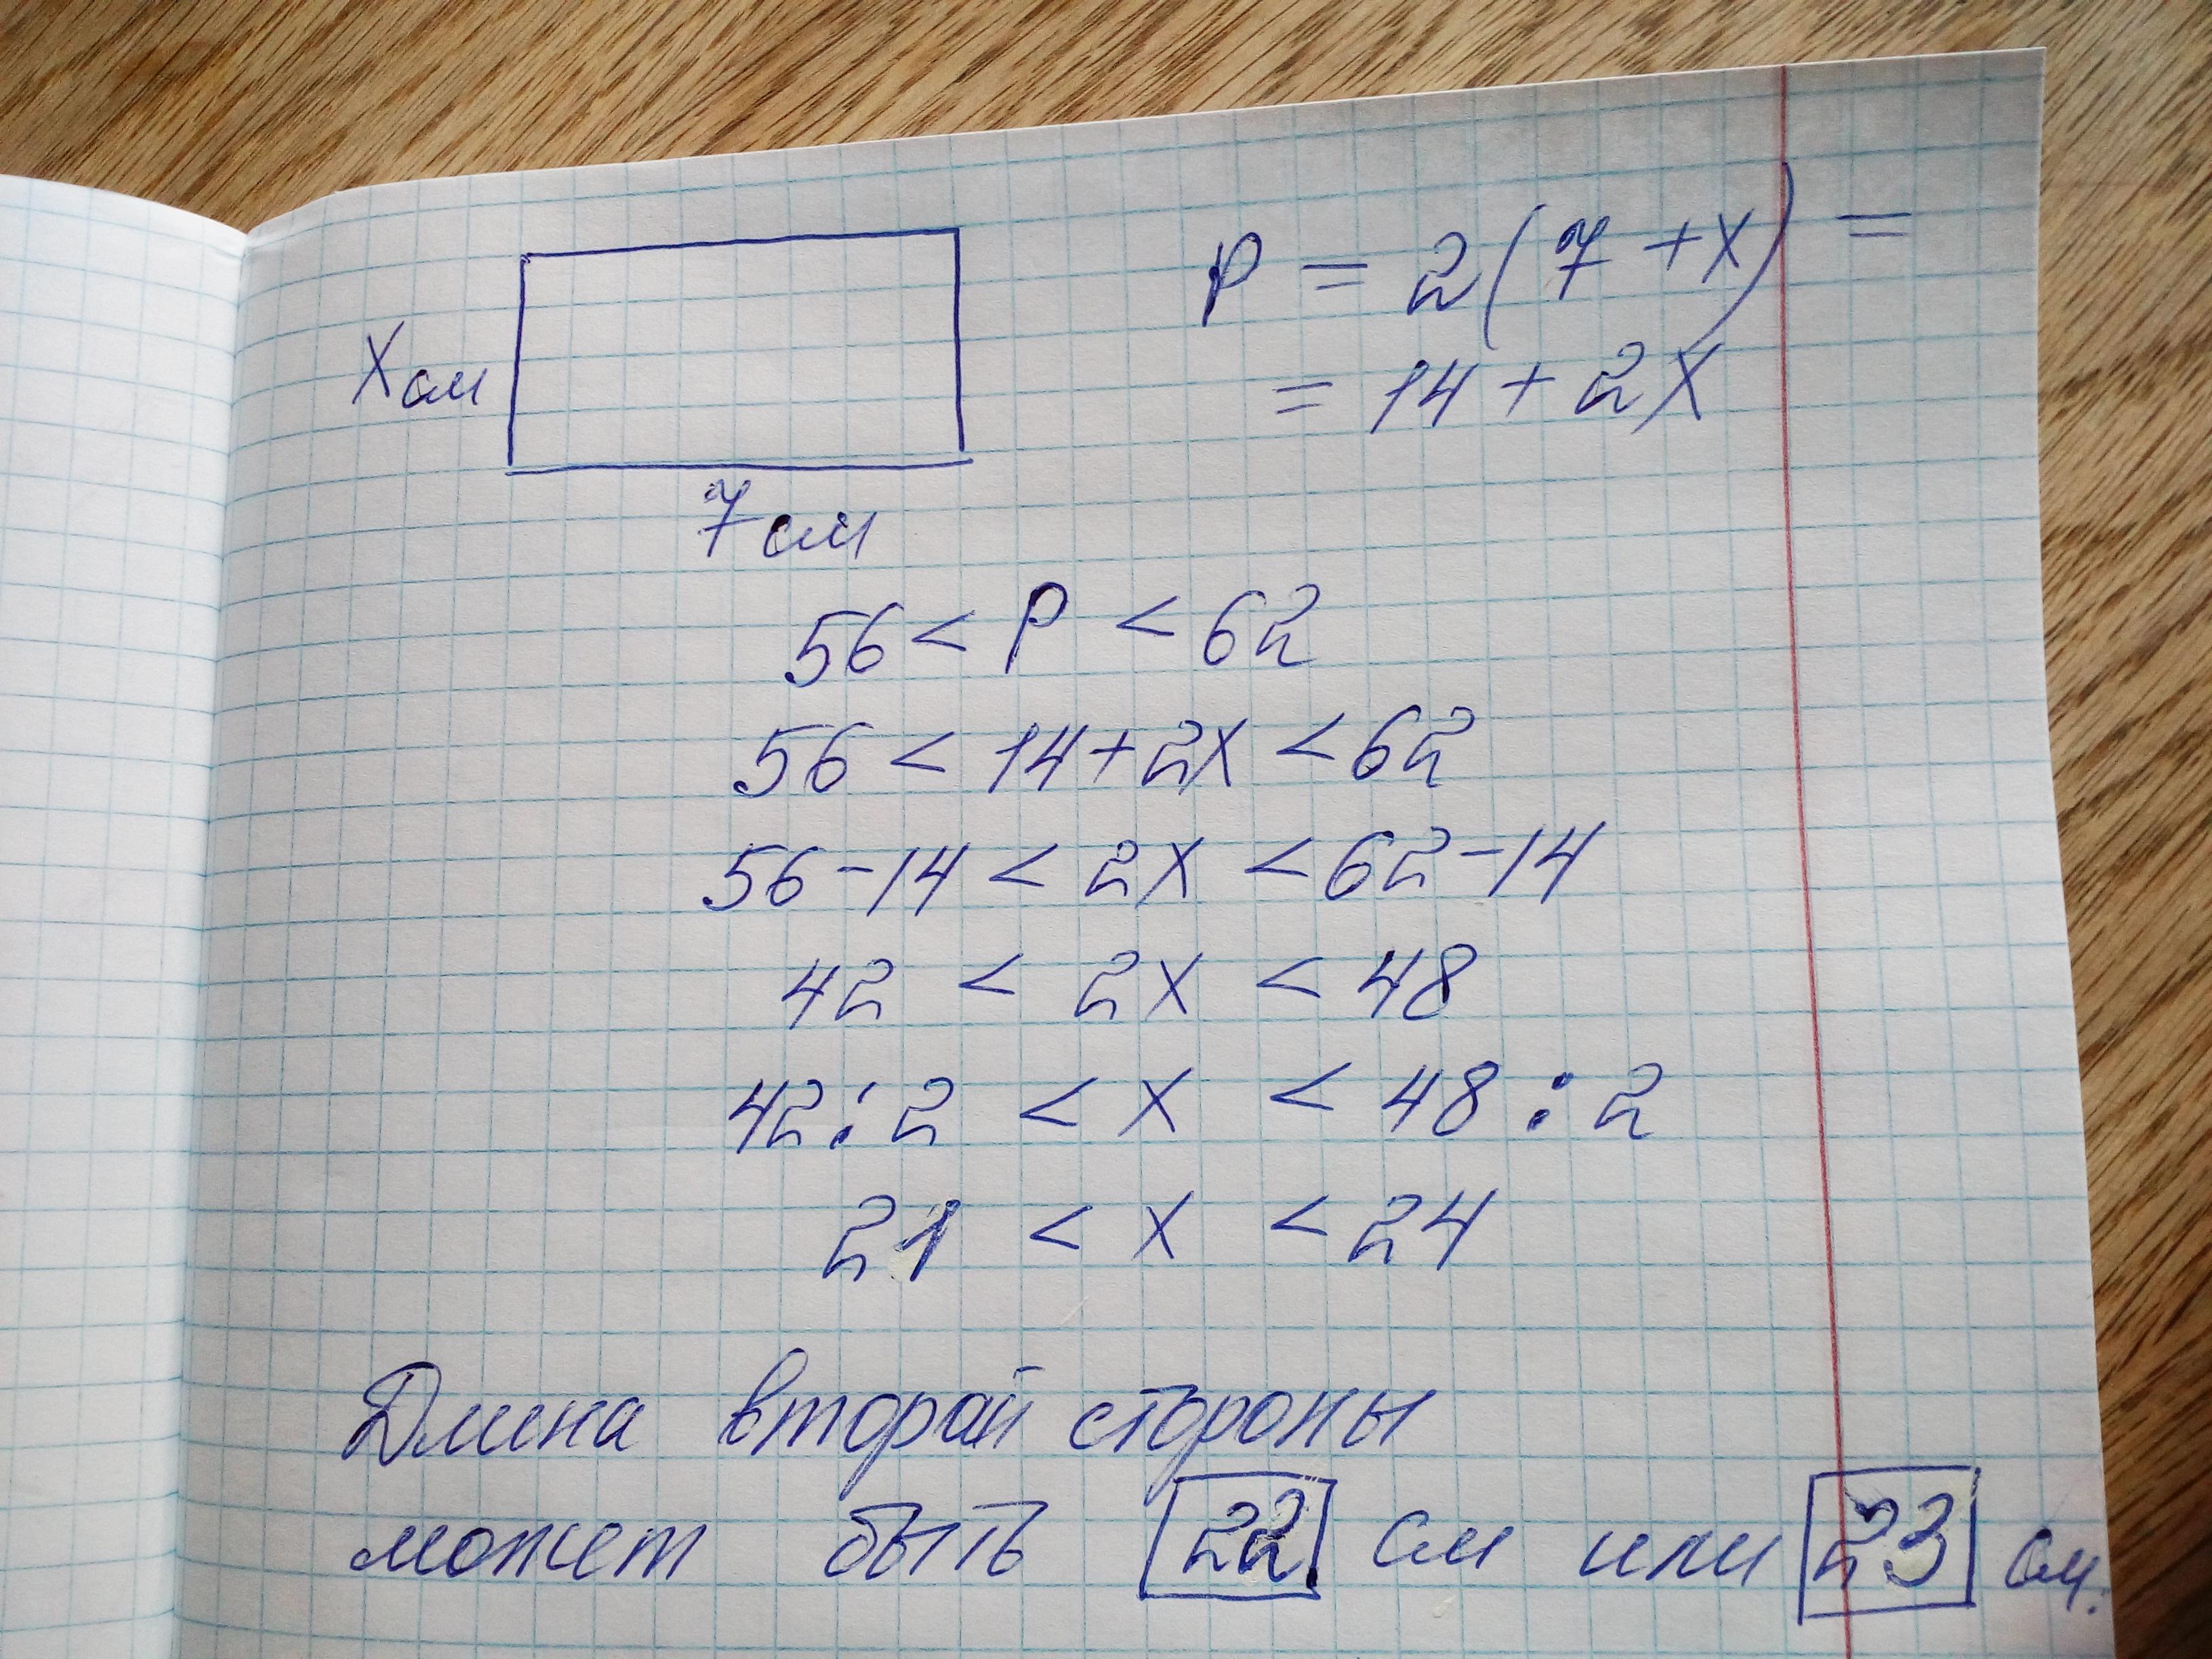 P = 2(7 + x) =
= 14 + 2x
x см
7 см
56 < P < 62
56 < 14 + 2x < 62
56 - 14 < 2x < 62 - 14
42 < 2x < 48
42 : 2 < x < 48 : 2
21 < x < 24
Длина второй стороны
может быть 22 см или 23 см.